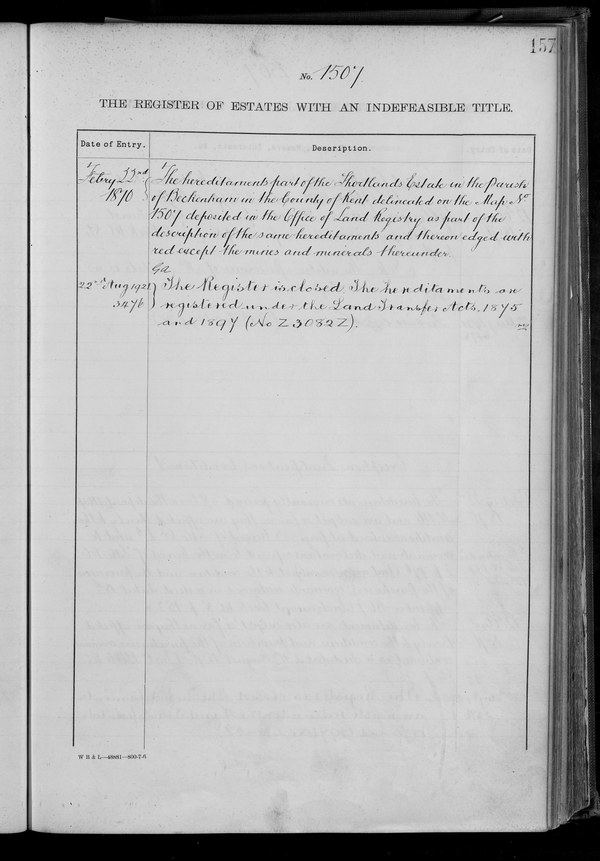 157
No. 1507
THE REGISTER OF ESTATES WITH AN INDEFEASIBLE TITLE.
Date of Entry.
Description.
1
Febry 22nd
1870
1
The hereditaments part of the Shortlands Estate in the Parish
of Beckenham in the County of Kent delineated on the Map No
1507 deposited in the Office of Land Registry as part of the
description of the same hereditaments and thereon edged with
red except the mines and minerals thereunder.
22nd Aug 1921
3476
The Register is closed. The hereditaments are
registered under the Land Transfer Acts, 1875
and 1897 (No Z3082Z).
W B & L—48981—800-7-6